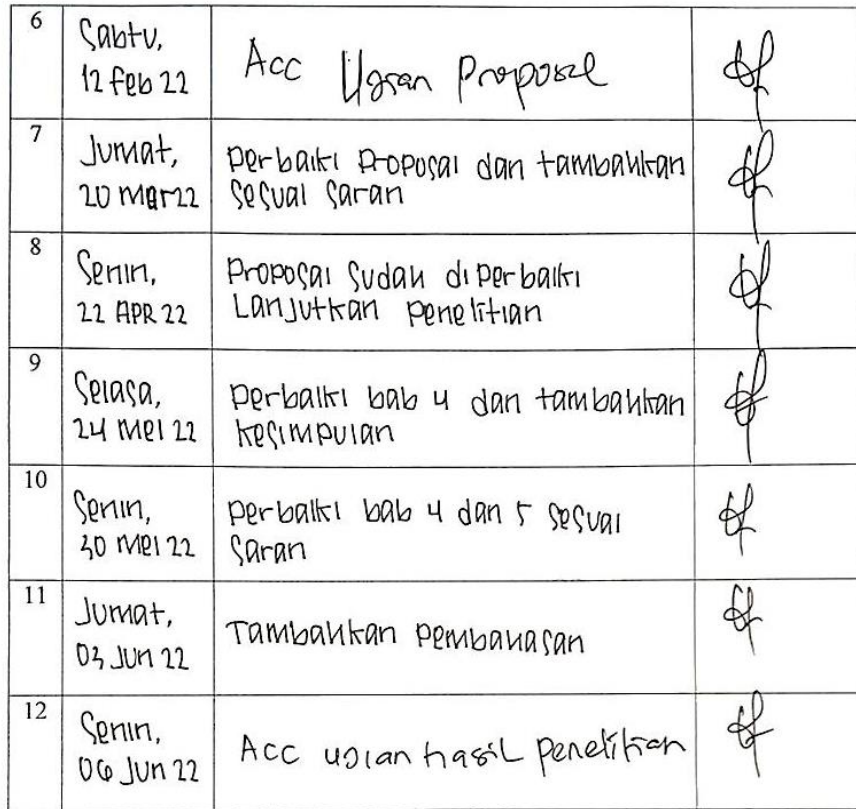 6
Sabtu,
12 feb 22
Acc Ujian Proposal
7
Jumat,
20 Mar 22
perbaiki proposal dan tambahkan
sesuai saran
8
Senin,
22 APR 22
proposal sudah diperbaiki
Lanjutkan penelitian
9
Selasa,
24 Mei 22
perbaiki bab 4 dan tambahkan
kesimpulan
10
Senin,
30 Mei 22
perbaiki bab 4 dan 5 sesuai
saran
11
Jumat,
03 Jun 22
Tambahkan pembahasan
12
Senin,
06 Jun 22
Acc ujian hasil penelitian